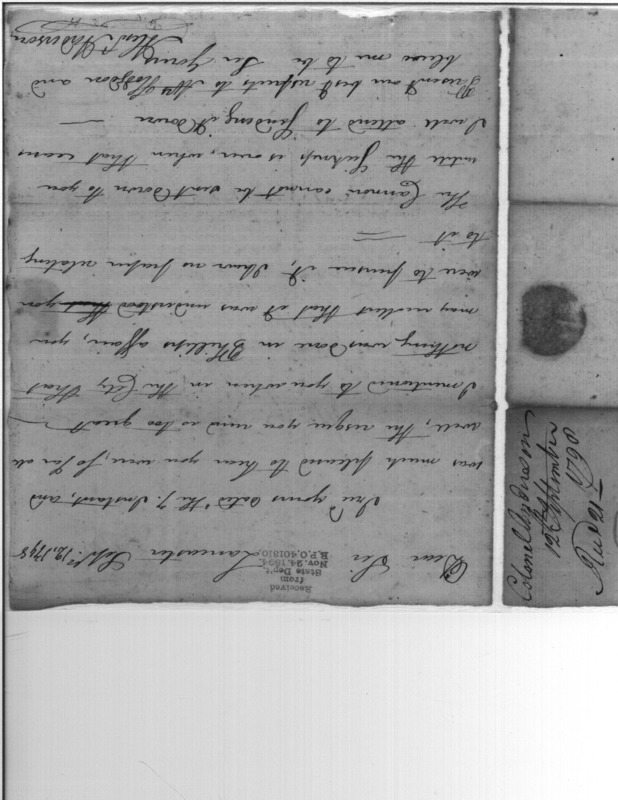 Received
from
State Dep't.
Nov. 24, 1894.
R.P.O. 401810
Dear Sir Lancaster Sept. 12. 1798
Rec'd yours dated the 7. Instant, and
was much pleased to hear you were, so far all
well, the resque you run is too great —
I mentioned to you when in the City that
nothing was done in Phillips affair, you
may recollect that it was understood that you
were to pursue it, I have no paper relating
to it —
The Cannon cannot be sent down to you
until the Sickness is over, when that ceases
I will attend to sending it down —
Present our best respects to Mrs Hodgdon and
believe me to be Sir Yours
Anderson
Colonel Anderson
12th September
1798
Recd 21st